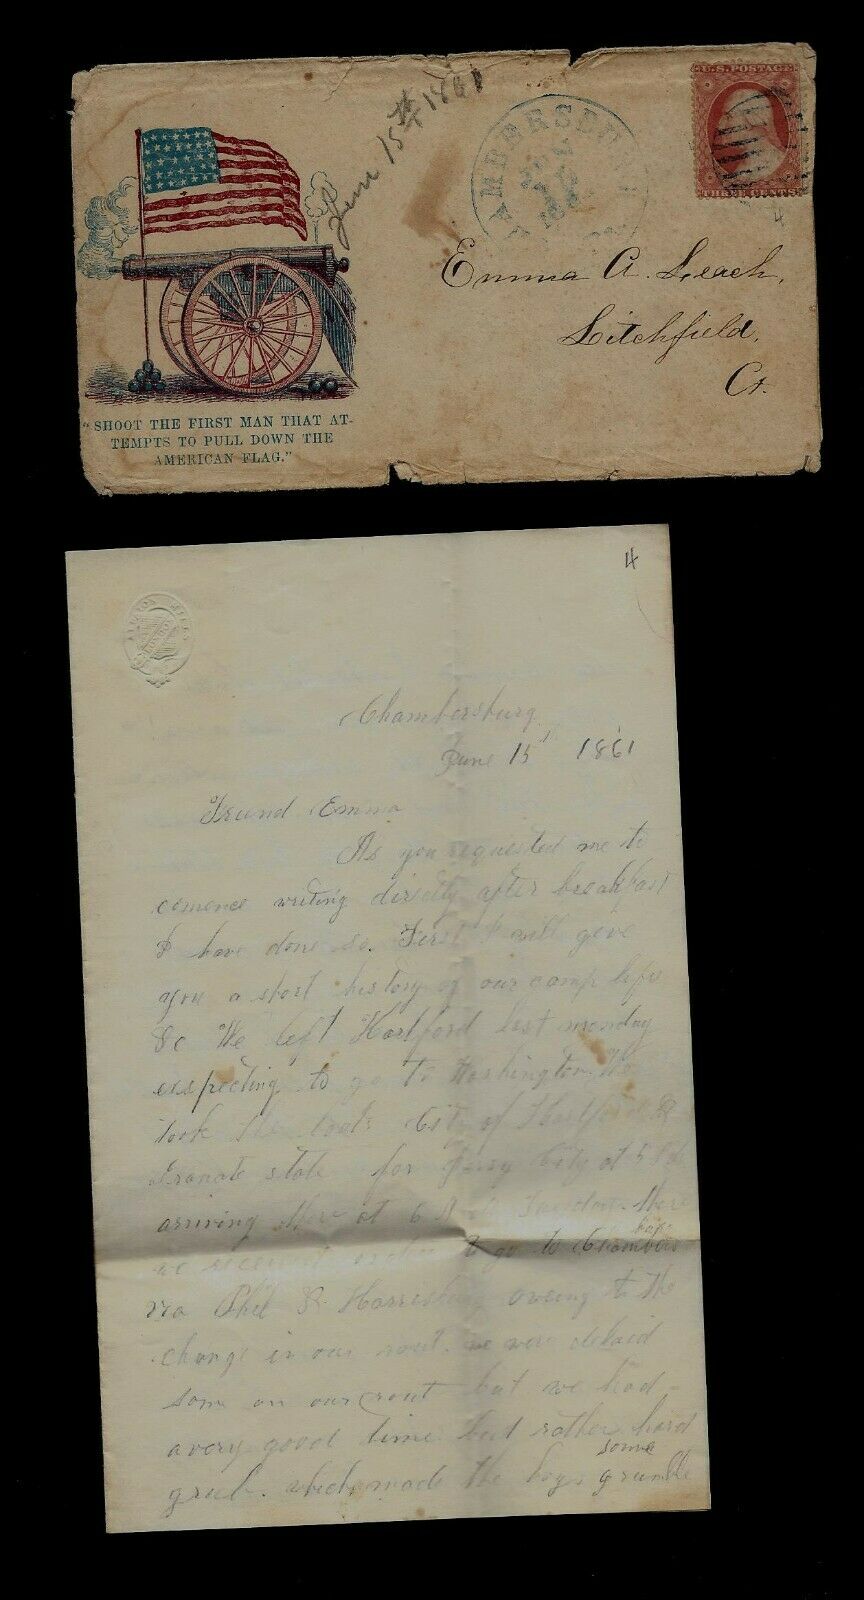 June 15th 1861
CHAMBERSBURG
U.S. POSTAGE
THREE CENTS
4
Emma A. Leach,
Litchfield,
Ct.
"SHOOT THE FIRST MAN THAT AT-
TEMPTS TO PULL DOWN THE
AMERICAN FLAG."
4
Chambersburg
June 15 1861
Freind Emma
As you requested me to
comence writing directly after breakfast
I have done so. First I will give
you a short history of our camp life
&c We left Hartford last monday
expecting to go to Washington. We
took the boats City of Hartford &
Granate state for Jersy City at 5
arriving there at 6 there
we to go to Chambers
burg
via Phil & Harrisburg owing to the
change in our rout. we were delaid
some on our rout but we had
a very good time but rather hard
grub. which made the boys some grumble